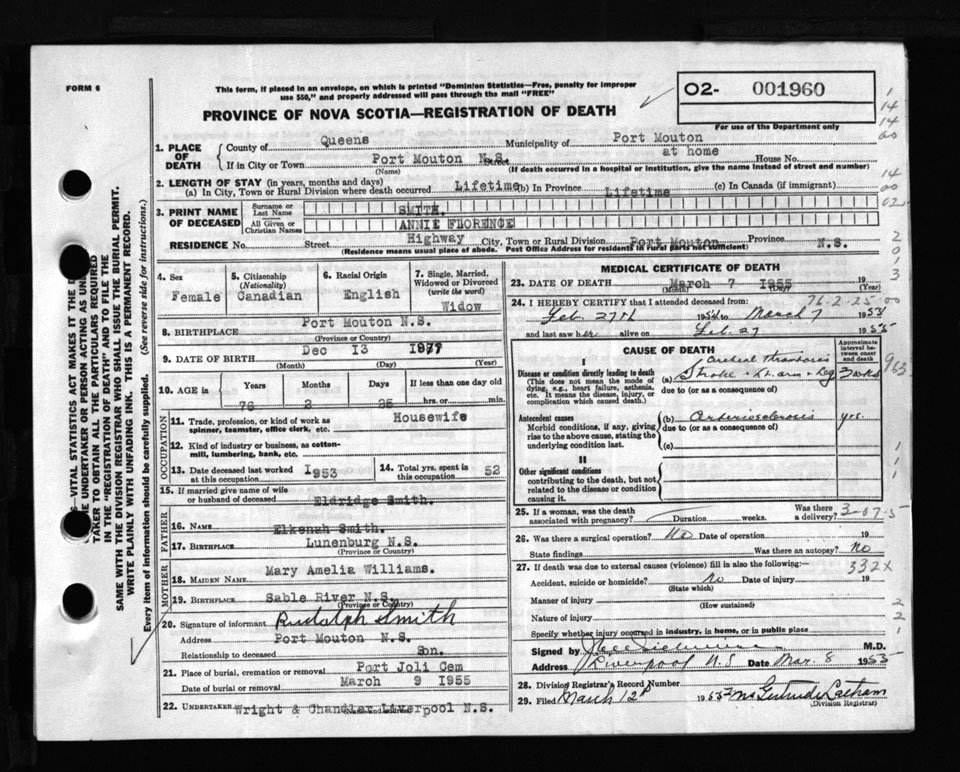 FORM 6
This form, if placed in an envelope, on which is printed "Dominion Statistics—Free, penalty for improper
use $50," and properly addressed will pass through the mail "FREE"
PROVINCE OF NOVA SCOTIA—REGISTRATION OF DEATH
O2- 001960
For use of the Department only
1. PLACE OF DEATH
County of Queens Municipality of Port Mouton
If in City or Town Port Mouton N.S. Street at home House No.
(Name) (If death occurred in a hospital or institution, give the name instead of street and number)
2. LENGTH OF STAY (in years, months and days)
(a) In City, Town or Rural Division where death occurred Lifetime (b) In Province Lifetime (c) In Canada (if immigrant)
3. PRINT NAME OF DECEASED
Surname or Last Name SMITH.
All Given or Christian Names ANNIE FLORENCE
RESIDENCE No. Street Highway City, Town or Rural Division Port Mouton Province N.S.
(Residence means usual place of abode. Post Office Address for residents in rural parts not sufficient)
4. Sex Female
5. Citizenship (Nationality) Canadian
6. Racial Origin English
7. Single, Married, Widowed or Divorced (write the word) Widow
8. BIRTHPLACE Port Mouton N.S.
(Province or Country)
9. DATE OF BIRTH Dec 13
(Month) (Day) (Year)
10. AGE in Years Months Days If less than one day old
76 2 25 hrs. or min.
OCCUPATION
11. Trade, profession, or kind of work as spinner, teamster, office clerk, etc. Housewife
12. Kind of industry or business, as cotton-mill, lumbering, bank, etc.
13. Date deceased last worked at this occupation 1953
14. Total yrs. spent in this occupation 52
15. If married give name of wife or husband of deceased Eldridge Smith.
FATHER
16. NAME Elkenah Smith.
17. BIRTHPLACE Lunenburg N.S.
(Province or Country)
MOTHER
18. MAIDEN NAME Mary Amelia Williams.
19. BIRTHPLACE Sable River N.S.
(Province or Country)
20. Signature of informant Rudolph Smith
Address Port Mouton N.S.
Relationship to deceased Son.
21. Place of burial, cremation or removal Port Joli Cem
Date of burial or removal March 9 1955
22. UNDERTAKER Wright & Chandler Liverpool N.S.
MEDICAL CERTIFICATE OF DEATH
23. DATE OF DEATH March 7 1955 19
(Month) (Day) (Year)
24. I HEREBY CERTIFY that I attended deceased from: 76-2-25
Feb. 27th 1954 to March 7 1955
and last saw her alive on Feb. 27 1955
CAUSE OF DEATH
Approximate interval between onset and death
I
Disease or condition directly leading to death
(This does not mean the mode of dying, e.g., heart failure, asthenia, etc. It means the disease, injury, or complication which caused death.)
Cerebral Thrombosis
(a) Stroke + Lt. arm + Leg
due to (or as a consequence of)
Antecedent causes
Morbid conditions, if any, giving rise to the above cause, stating the underlying condition last.
(b) Arteriosclerosis yrs.
due to (or as a consequence of)
(c)
II
Other significant conditions
contributing to the death, but not related to the disease or condition causing it.
25. If a woman, was the death associated with pregnancy? Duration weeks. Was there a delivery?
26. Was there a surgical operation? No Date of operation 19
State findings Was there an autopsy? No
27. If death was due to external causes (violence) fill in also the following:— 332X
Accident, suicide or homicide? No Date of injury 19
(State which)
Manner of injury
(How sustained)
Nature of injury
Specify whether injury occurred in industry, in home, or in public place
Signed by M.D.
Address Liverpool N.S Date Mar. 8 1955
28. Division Registrar's Record Number
29. Filed March 12 1955 Gertrude Latham
(Division Registrar)
SAME WITH THE DIVISION REGISTRAR WHO SHALL ISSUE THE BURIAL PERMIT.
WRITE PLAINLY WITH UNFADING INK. THIS IS A PERMANENT RECORD.
Every item of information should be carefully supplied. (See reverse side for instructions.)